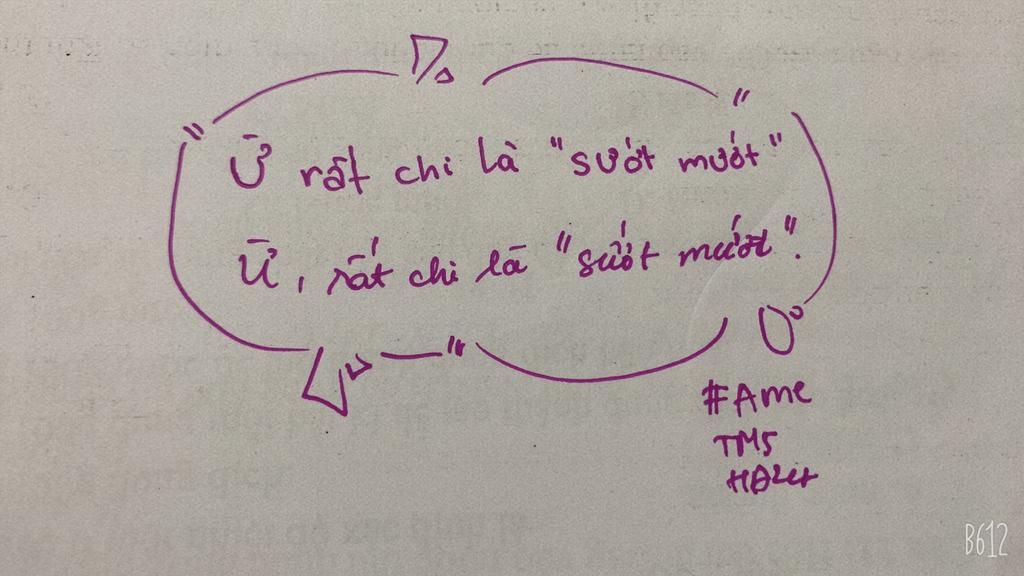 Ừ rất chi là "sướt mướt"
Ừ, rất chi là "sướt mướt".
#Ame
TM5
B612